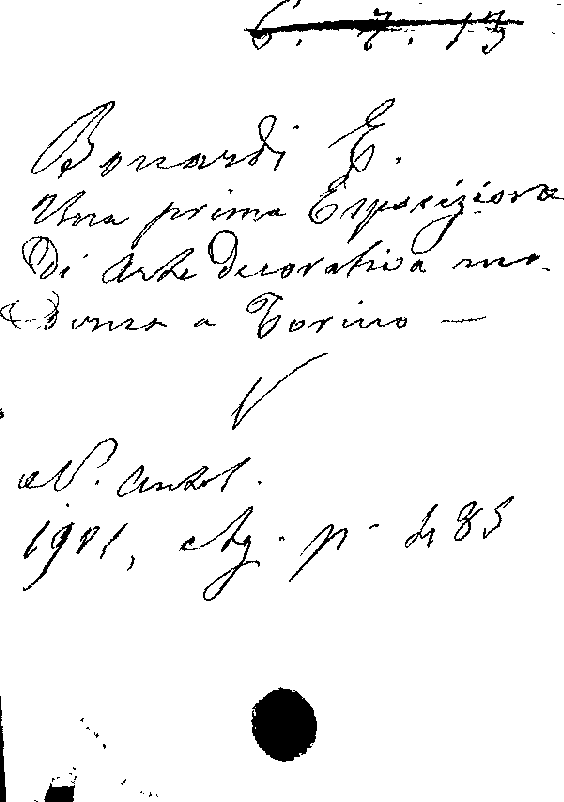 6. 7. 13
Bonardi E.
Una prima Esposizione
di Arte decorativa mo-
derna a Torino —
V
N. Antol.
1901, Ag. p. 485